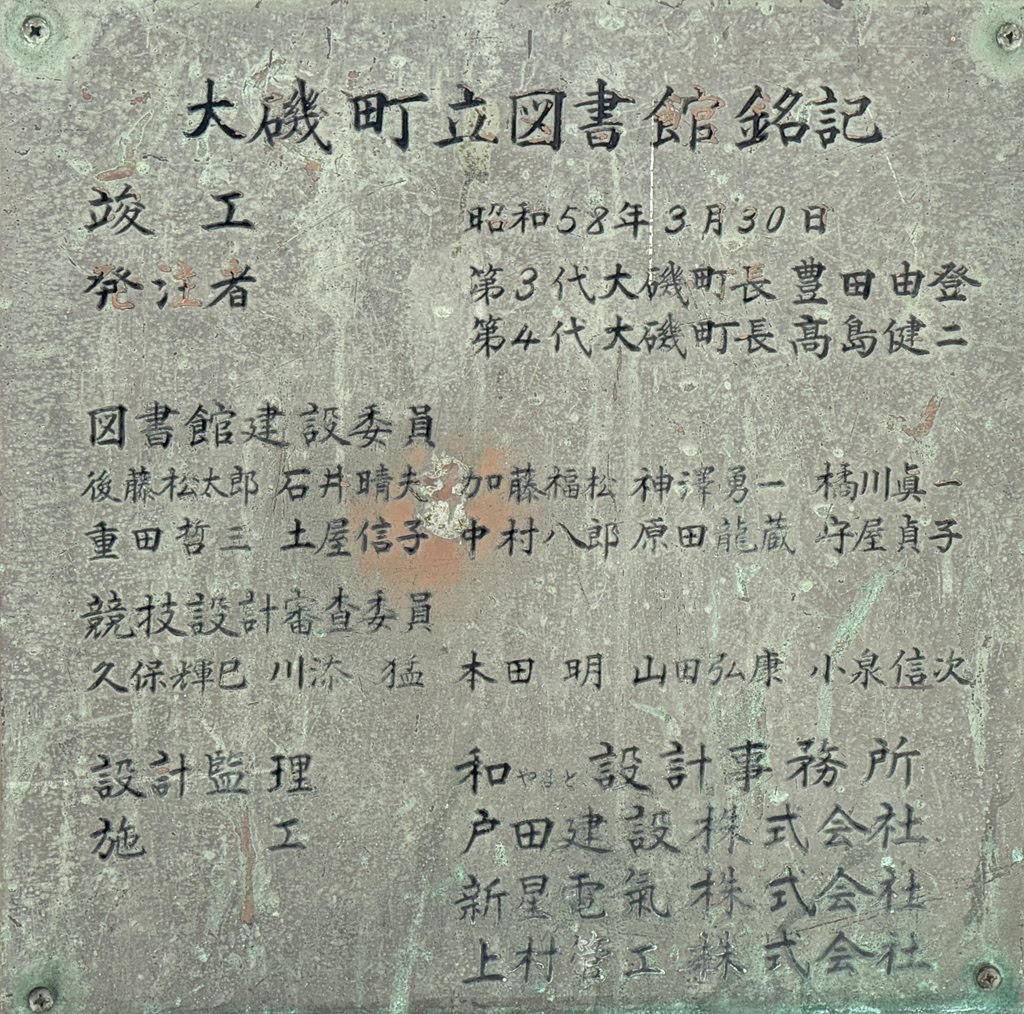 大磯町立図書館銘記
竣工 昭和58年3月30日
発注者 第3代大磯町長豊田由登
第4代大磯町長髙島健二
図書館建設委員
後藤松太郎 石井晴夫 加藤福松 神澤勇一 橘川眞一
重田哲三 土屋信子 中村八郎 原田龍蔵 守屋貞子
競技設計審査委員
久保輝巳 川添猛 本田明 山田弘康 小泉信次
設計監理 和やまと設計事務所
施工 戸田建設株式会社
新星電氣株式会社
上村管工株式会社